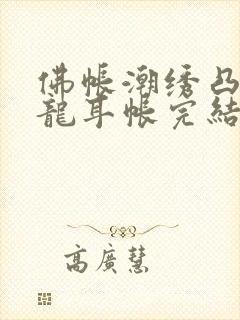 佛帳潮绣凸
龍耳帳完結
高廣慧